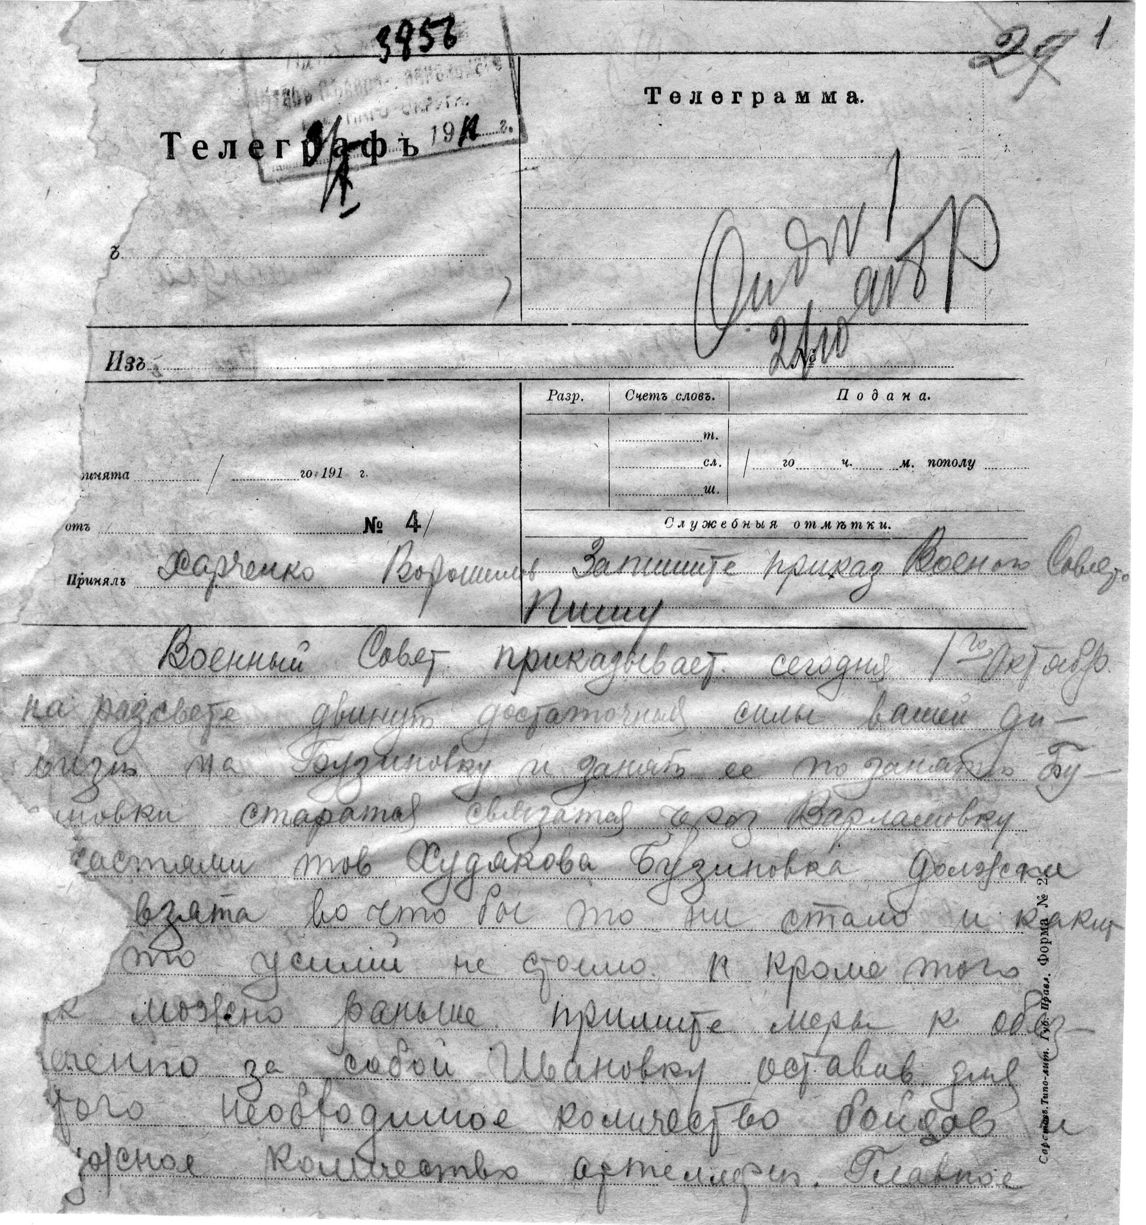 3956
29 1
Телеграмма.
Телеграфъ 191 г.
ъ
2/10
Изъ
Разр. Счетъ словъ. Подана.
т.
сл.
го ч. м. пополу
ш.
инята го 191 г.
отъ № 4/
Служебныя отмѣтки.
Принялъ Харченко Ворошилов Запишите приказ Военого Совета
Пишу
Военный Совет приказывает сегодня 1го Октябр
на разсвете двинут достаточныя силы вашей ди-
визи на Бузиновку и занять ее по занятию Бу-
иновки старатся связатся чрез Варламовку
частями тов Худякова Бузиновка должна
взята во что бы то ни стало и каких
то усилий не стоило и кроме того
к можно раньше примите меры к обез-
печению за собой Ивановку оставив для
того необходимое количество бойцов и
ужное количество артелерии. Главное
Сарспасв. Типо-лит. Губ. Правл. Форма № 2.